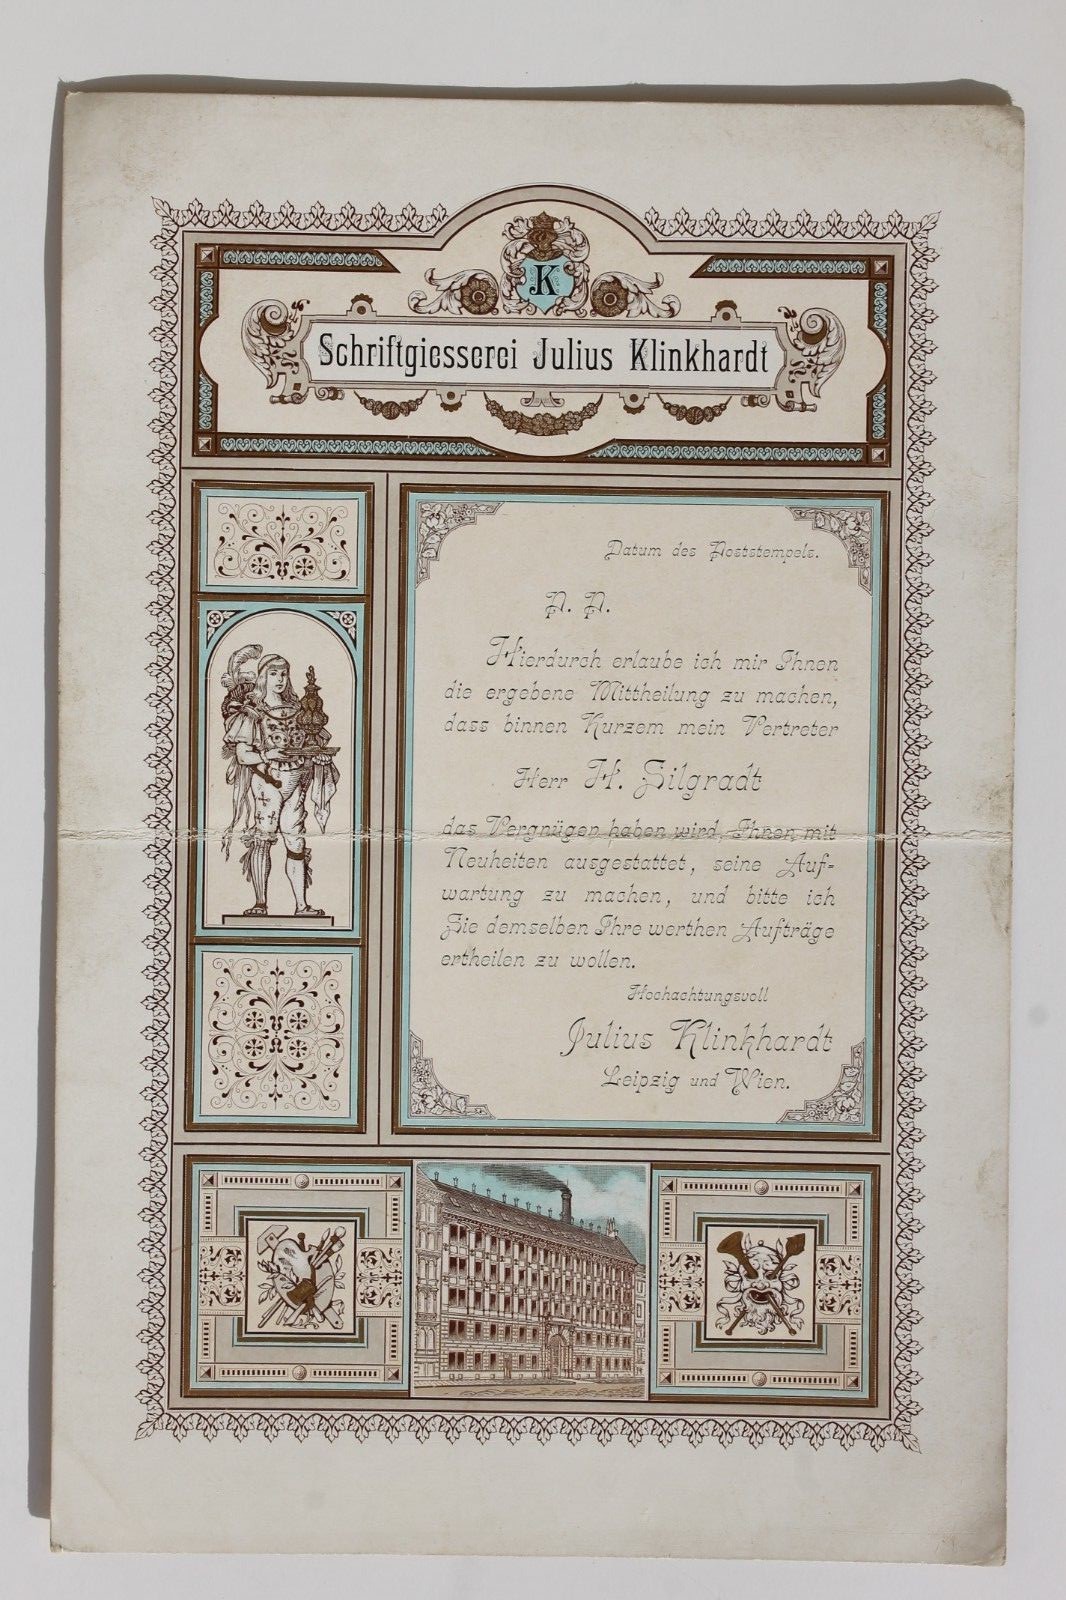 K
Schriftgiesserei Julius Klinkhardt
Datum des Poststempels.
P. P.
Hierdurch erlaube ich mir Ihnen
die ergebene Mittheilung zu machen,
dass binnen Kurzem mein Vertreter
Herr H. Silgradt
das Vergnügen haben wird, Ihnen mit
Neuheiten ausgestattet, seine Auf-
wartung zu machen, und bitte ich
Sie demselben Ihre werthen Aufträge
ertheilen zu wollen.
Hochachtungsvoll
Julius Klinkhardt
Leipzig und Wien.